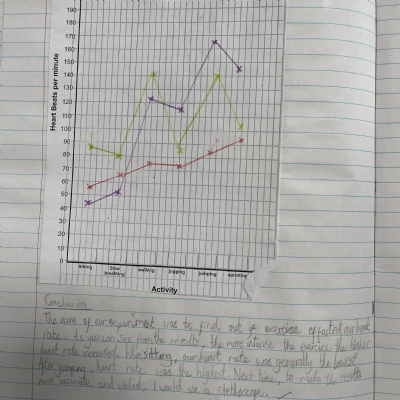 190
180
170
160
150
140
130
120
110
100
90
80
70
60
50
40
30
20
10
0
Heart Beats per minute
sitting
Slow breathing
walking
jogging
jumping
sprinting
Activity
Conclusion
The aim of our experiment was to find out if exercise effected our heart
rate. As you can see from the results, the more intense the exercise the higher
heart rate increased. When sitting, our heart rate was generally the lowest
After jumping, heart rate was the highest. Next time, to make the results
more accurate and valid, I would use a stethoscope.